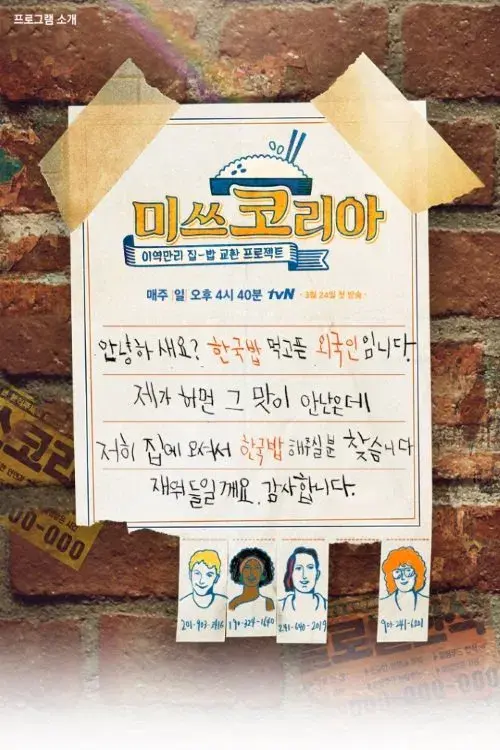 프로그램 소개
미쓰코리아
이역만리 집-밥 교환 프로젝트
매주 일 오후 4시 40분 tvN · 3월 24일 첫 방송 ·
안녕하새요? 한국밥 먹고픈 외국인입니다.
제가 하면 그 맛이 안난은데
저희 집에 오셔서 한국밥 해주실분 찾습니다
재워 들일게요. 감사합니다.
쓰코리
00-000
201-903-2416
170-324-1640
241-640-2019
903-241-6201
000-000-000